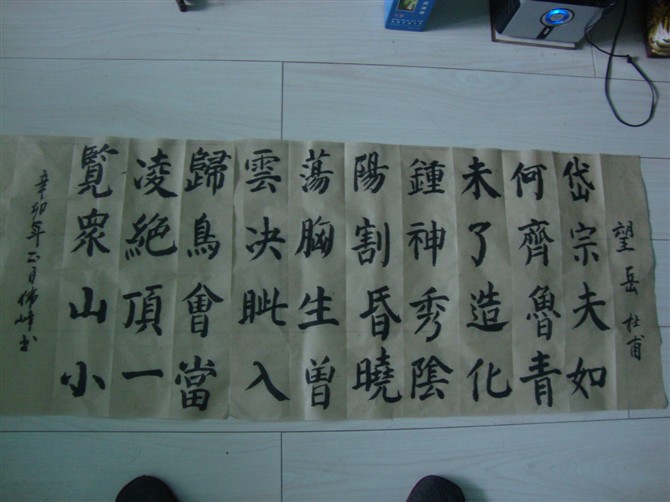 望岳 杜甫
岱宗夫如
何齊魯青
未了造化
鍾神秀陰
陽割昏曉
蕩胸生曽
雲决眦入
歸鳥會當
凌絶頂一
覽衆山小
辛卯年正月 峰书